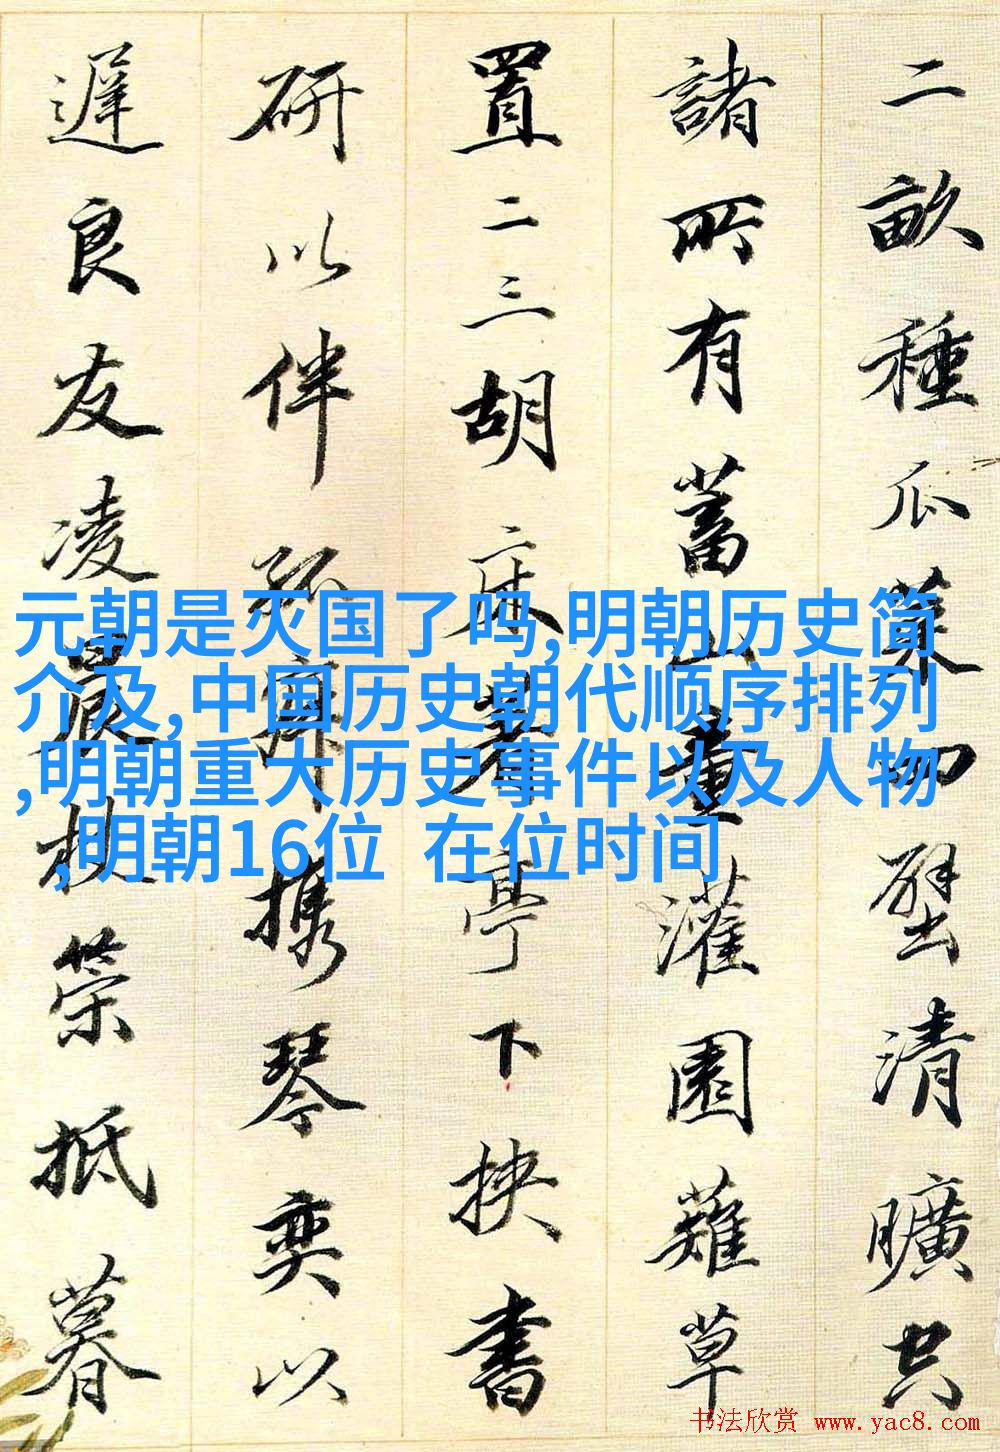 元朝是灭国了吗,明朝历史简
介及,中国历史朝代顺序排列
,明朝重大历史事件以及人物
,明朝16位 在位时间
二畝種瓜菜四壁清曠空
諸所有蓄山童灌園薙草
置二三胡床著亭下挾書
研以伴孤寂攜琴奕以
遲良友凌晨杖策抵暮
书法欣赏 www.yac8.com